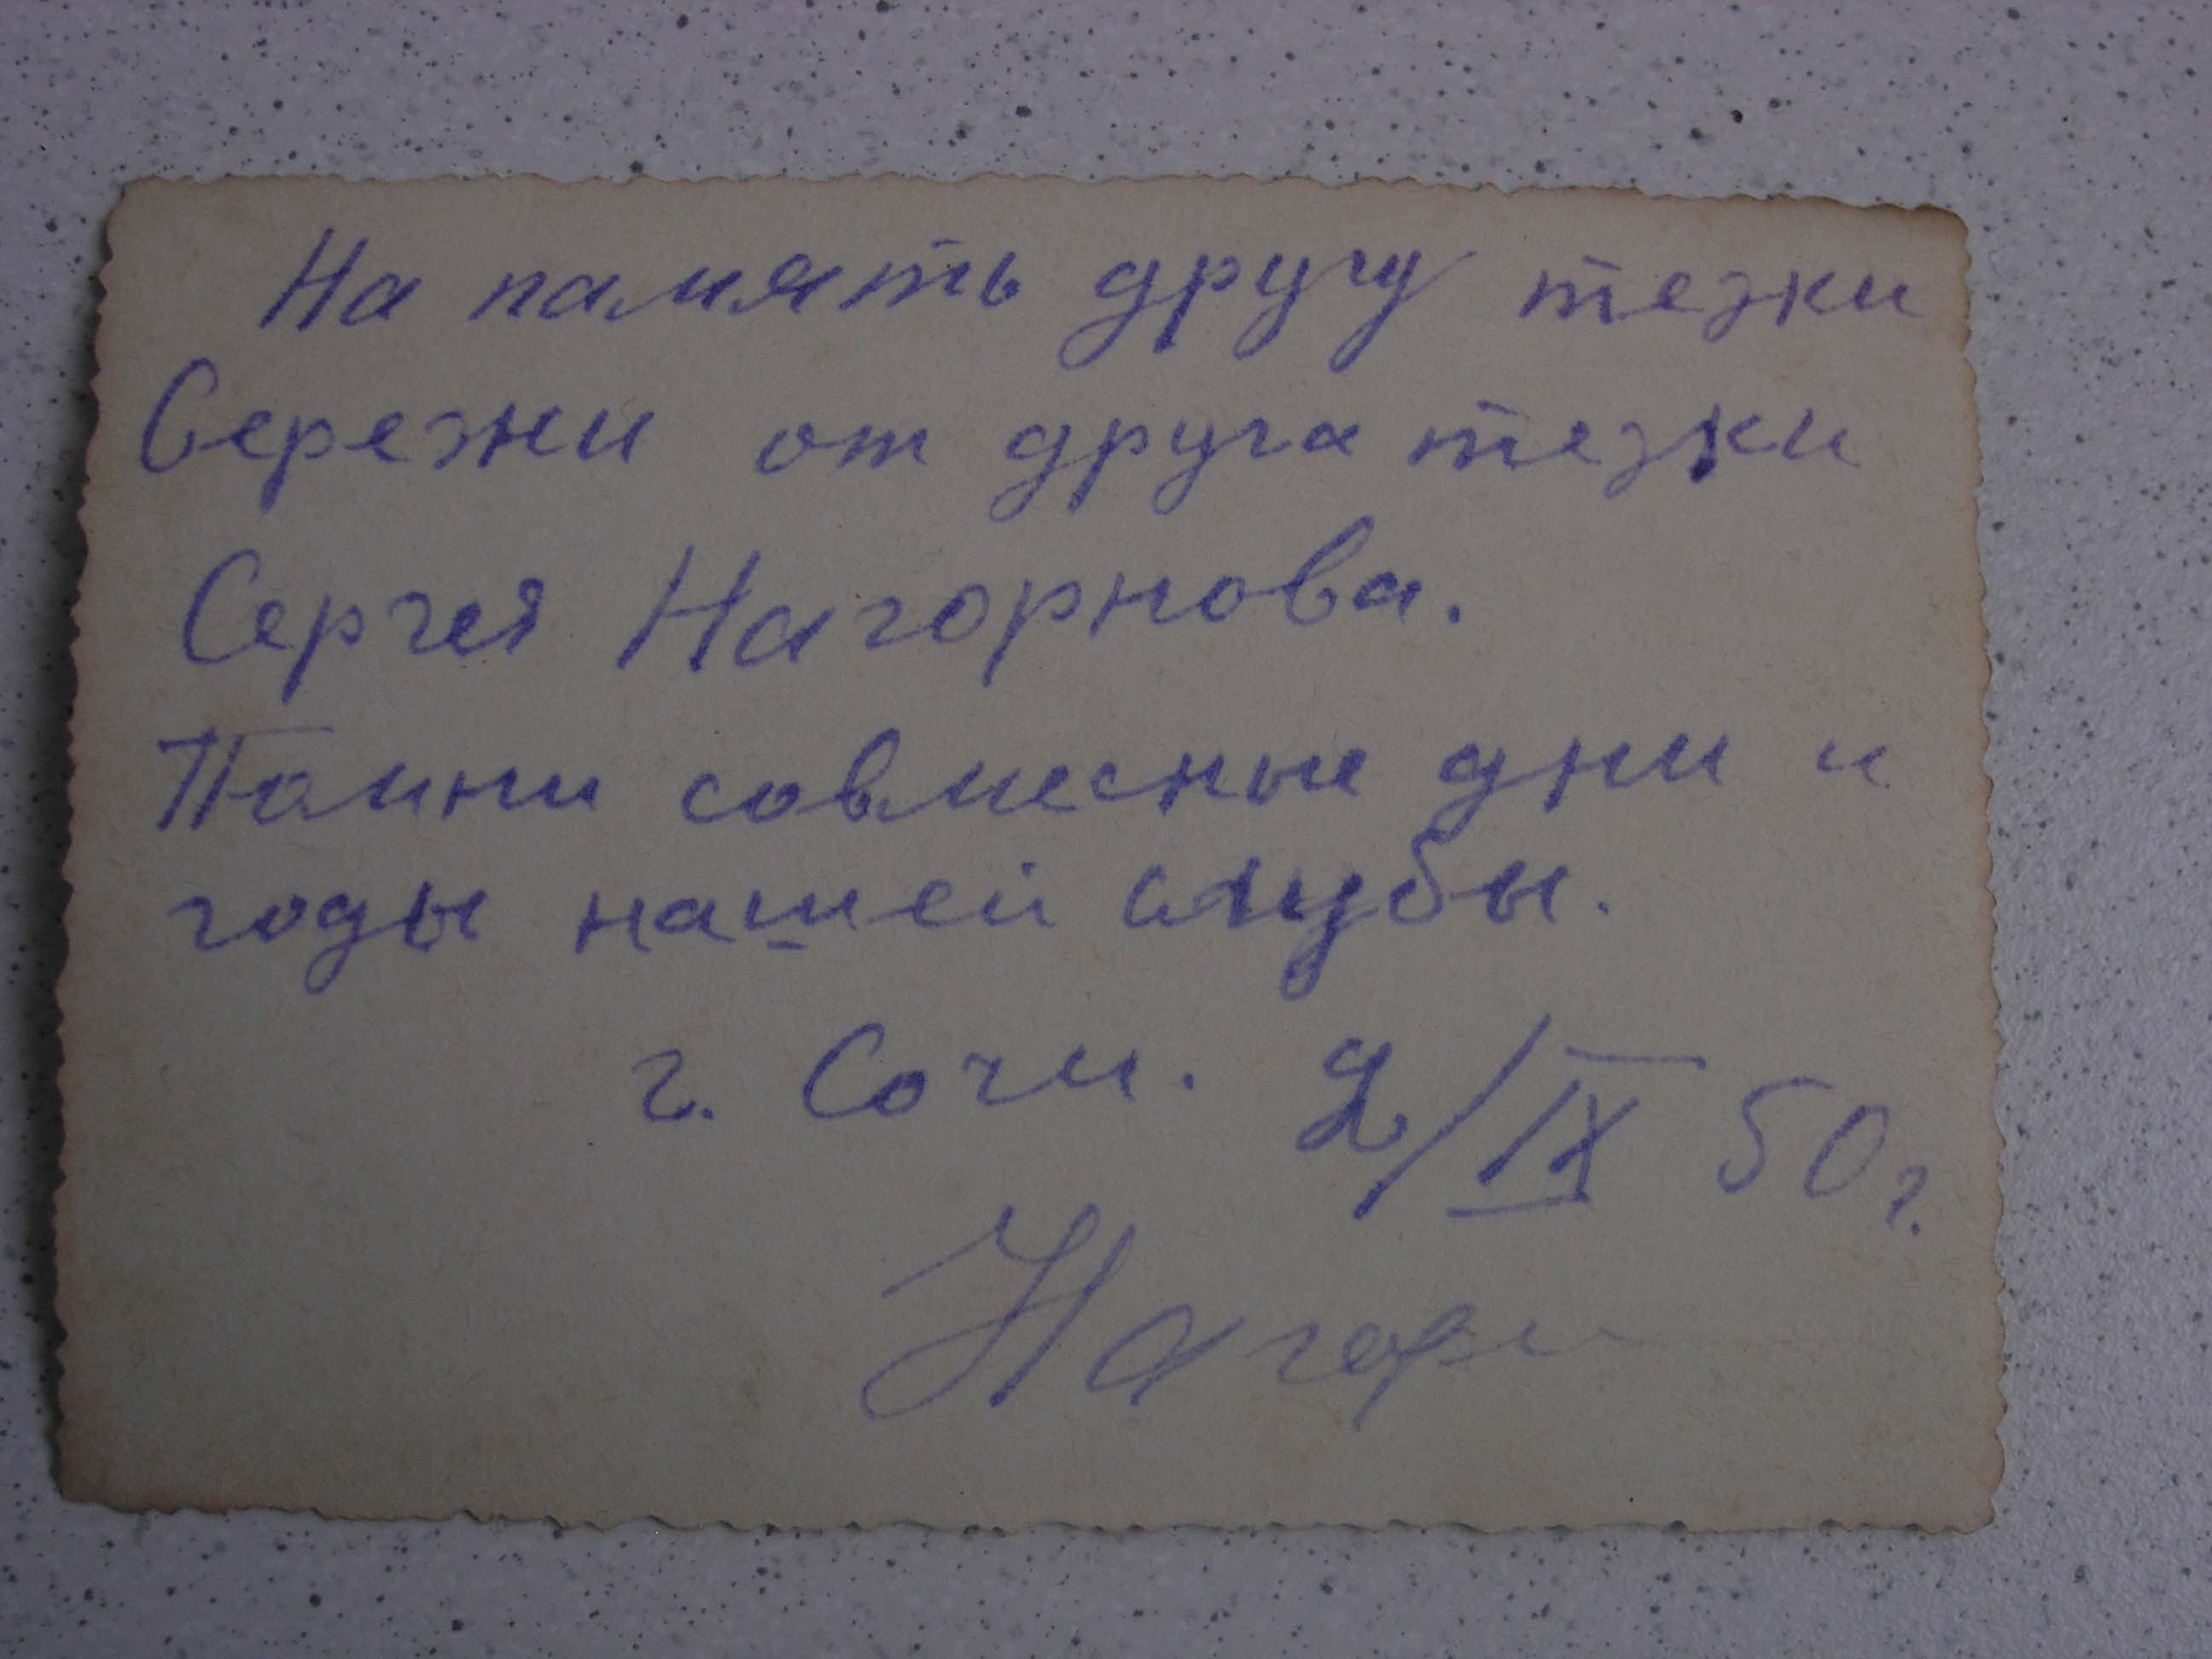 На память другу тезки
Сережи от друга тезки
Сергея Нагорнова.
Помни совмесные дни и
годы нашей службы.
г. Сочи. 2/IX 50 г.
Нагорн